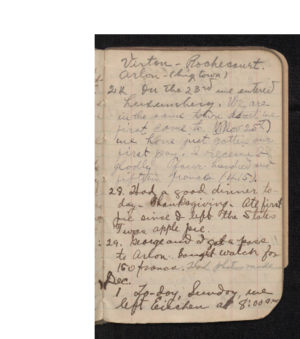 Virton - Rochecourt.
Arlon - (big town)
24. On the 23rd we entered
Luxemburg. We are
in the same town as
first came to. (Nov 25th)
we have just gotten our
first pay. I received
Four hundred and
francs (415).
28. Had a good dinner to-
day - Thanksgiving - Ate first
pie since I left the States
Twas apple pie.
29. George and I got a pass
to Arlon. Bought watch for
150 francs. Had photo made
Dec.
1 To-day, Sunday, we
left at 8:00 am